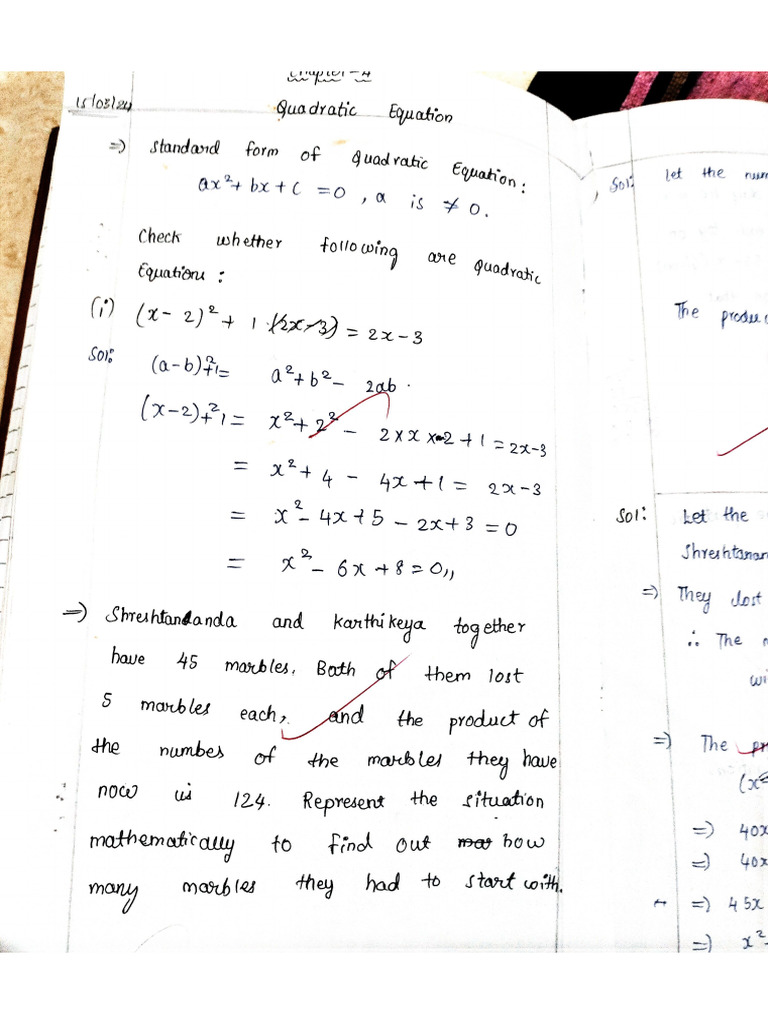 Chapter-4
15/03/24
Quadratic Equation
=> Standard form of Quadratic Equation:
ax²+ bx + c = 0, a is ≠ 0.
Check whether following are quadratic
Equations :
(i) (x-2)² + 1 (2x-3) = 2x-3
Sol: (a-b)²+1= a²+b²- 2ab.
(x-2)+²1= x²+2² - 2×x×-2+1=2x-3
= x²+4 - 4x+1= 2x-3
= x²-4x+5-2x+3=0
= x²-6x+8=0,,
=> Shreshtandanda and Karthikeya together
have 45 marbles. Both of them lost
5 marbles each, and the product of
the numbes of the marbles they have
now is 124. Represent the situation
mathematically to find out mar how
many marbles they had to start with.
Sol: Let the num
The produc
Sol: Let the
Shreshtanan
=> They lost
∴ The
wi
=> The pr
(x
=> 40x
=> 40x
=> 45x
=> x²-